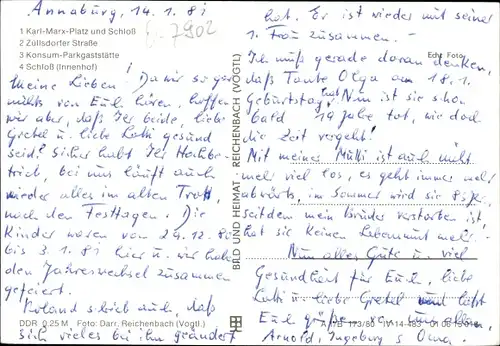 Annaburg, 14.1.81
6-7902
1 Karl-Marx-Platz und Schloß
2 Züllsdorfer Straße
3 Konsum-Parkgaststätte
4 Schloß (Innenhof)
Meine Lieben! Da wir so gar
nichts von Euch hören, hoffen
wir aber, daß Ihr beide, liebe
Gretel u. liebe Lotti gesund
seid? Sicher habt Ihr Hochbe-
trieb, bei uns läuft auch
wieder alles im alten Trott,
nach den Festtagen. Die
Kinder waren von 29.12.80
bis 3.1.81 hier u. wir haben
den Jahreswechsel zusammen
gefeiert.
Roland schrieb auch, daß
sich vieles bei ihm geändert
DDR 0,25 M Foto: Darr, Reichenbach (Vogtl.)
BILD UND HEIMAT REICHENBACH (VOGTL)
hat. Er ist wieder mit seiner
1. Frau zusammen. -
Echt Foto
Ich muß gerade daran denken,
daß Tante Olga am 18.1.
Geburtstag hat! Nun ist sie schon
bald 19 Jahre tot, wie doch
die Zeit vergeht!
Mit meiner Mutti ist auch nicht
mehr viel los, es geht immer mehr
abwärts, im Sommer wird sie 81 J.,
seitdem mein Bruder verstorben ist,
hat sie keinen Lebensmut mehr.
Nun alles Gute u. viel
Gesundheit für Euch, liebe
Lotti u. liebe Gretel und laßt
Euch grüßen von uns allen
A 1/B 173/80 IV-14-483
Arnold, Ingeburg u. Oma.